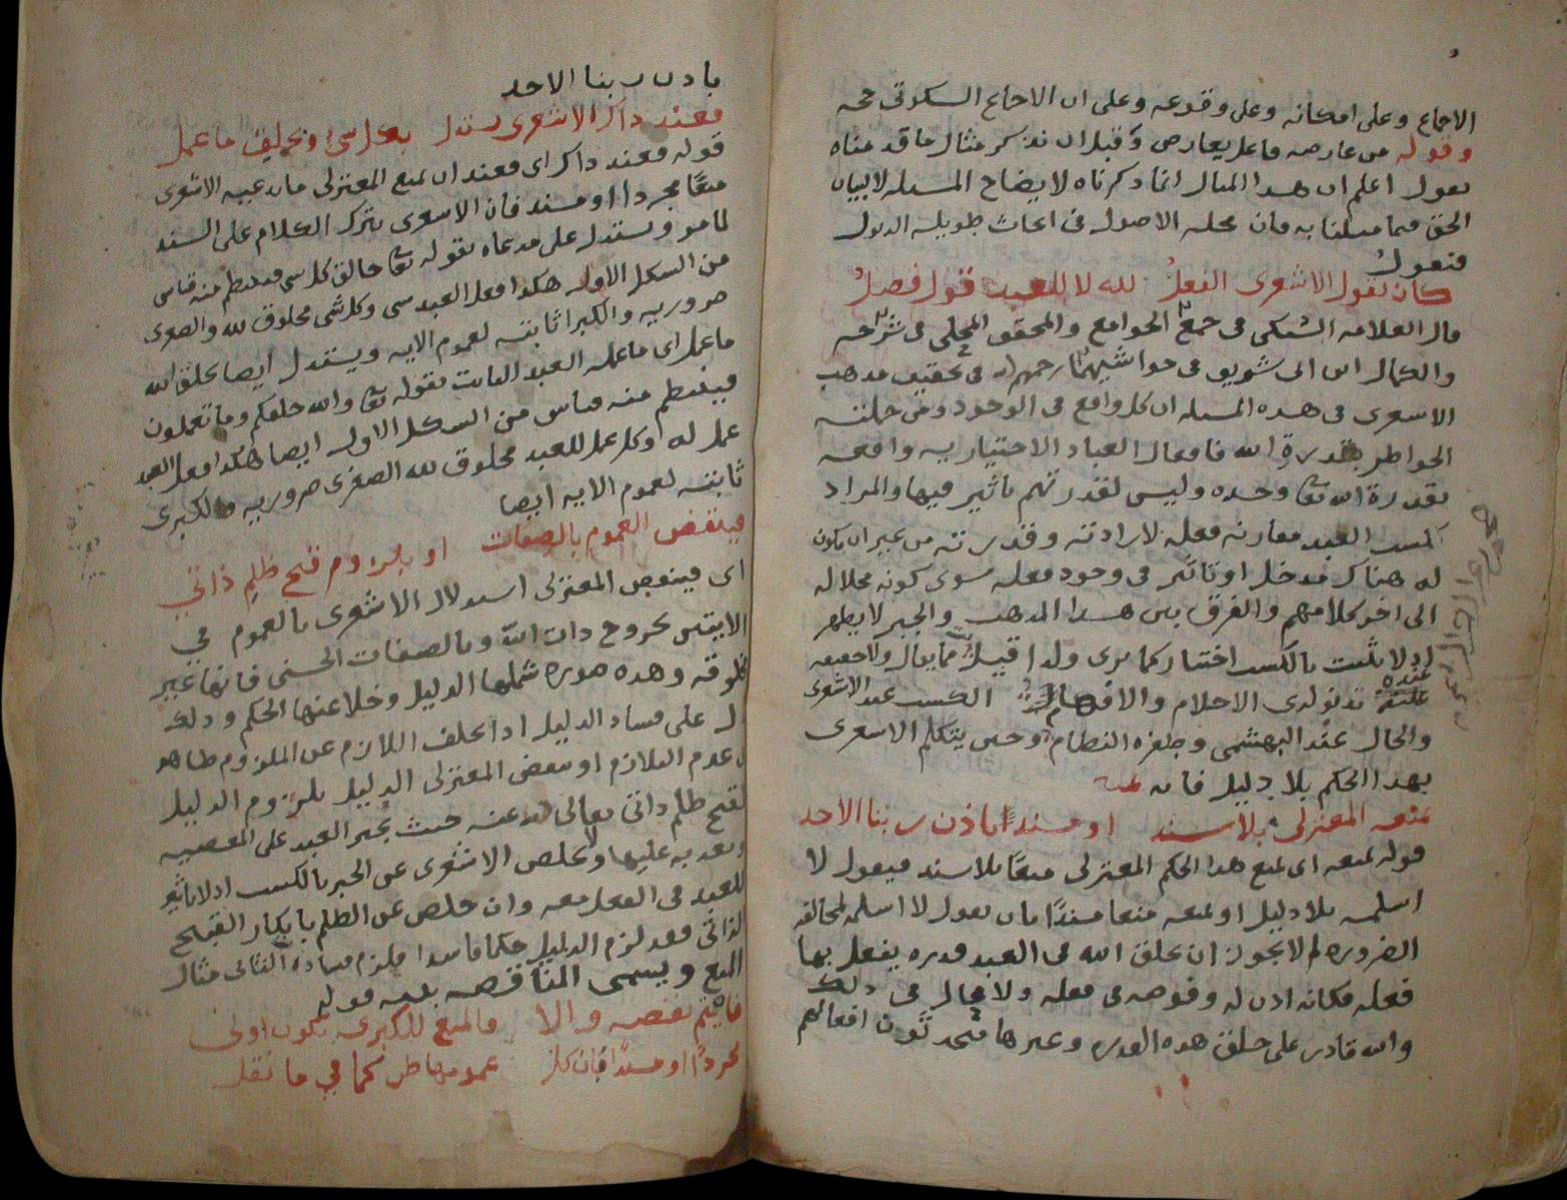 الاجماع وعلى امكانه وعلى وقوعه وعلى ان الاجماع السكوتى حجه
وقوله من عارضه فاعل يعارض وقبل ان نذكر مثال ما قدمناه
نعول اعلم ان هذا المثال انما ذكرناه لايضاح المسله لا لبيان
الحق فيما مثلنا به فان محله الاصول فى ابحاث طويلة الذيول
فنعول
كان يقول الاشعرى الفعل لله لا للعبد قول فصل
قال العلامه السبكى فى جمع الجوامع والمحقق المحلى فى شرحه
والكمال ابن ابى شريف فى حواشيهما رحمهم الله فى تحقيق مذهب
الاسعرى فى هذه المسله ان كل واقع فى الوجود ومن جملته
الخواطر بقدرة الله فافعال العباد الاختياريه واقعه
بقدرة الله تعا وحده وليس لقدرتهم تاثير فيها والمراد
بكسب العبد مقارنه فعله لارادته وقدرته من غير ان يكون
له هناك مدخل او تاثير فى وجود فعله سوى كونه محلا له
الى اخر كلامهم والفرق بين هذا المذهب والجبر لا يظهر
اذ لا يثبت بالكسب اختيار كما يرى ولذا قيل مما يقال ولا حقيقه
عنده تدنو لدى الاحلام والافهام الكسب عند الاشعرى
والحال عند البهشمى وطفره النظام وحين يتكلم الاسعرى
بهذا الحكم بلا دليل فانه
يمنعه المعتزلى بلا سند او مسندا باذن ربنا الاحد
قوله يمنعه اى يمنع هذا الحكم المعتزلى منعا بلا سند فيقول لا
اسلمه بلا دليل او يمنعه منعا مسندا بان يقول لا اسلمه لمخالفه
الضروره لم لا يجوز ان يخلق الله فى العبد قدره يفعل بها
فعله فكانه اذن له وفوضه فى فعله ولا محال فى ذلك
والله قادر على خلق هذه القدره وغيرها فيحدثون افعالهم
باذن ربنا الاحد
فعند ذاك الاشعرى يستدل بكل شئ وتخليق ما عمل
قوله فعند ذاك اى فعند ان يمنع المعتزلى ما يدعيه الاشعرى
منعا مجردا او مسند فان الاسعرى يترك الكلام على السند
لما مر ويستدل على مدعاه بقوله تعا خالق كل شى فينتظم منه قياس
من الشكل الاول هكذا فعل العبد شى وكل شى مخلوق لله والصغرى
ضروريه والكبرا ثابته لعموم الايه ويستدل ايضا بخلق الله
ما عمل اى ما عمله العبد الثابت بقوله تعا والله خلقكم وما تعملون
فينتظم منه قياس من الشكل الاول ايضا هكذا فعل العبد
عمل له وكل عمل للعبد مخلوق لله الصغرى ضروريه والكبرى
ثابته لعموم الايه ايضا
فينقض العموم بالصفات او بلزوم قبح ظلم ذاتي
اى فينقض المعتزلى استدلال الاشعرى بالعموم في
الايتين بخروج ذات الله وبالصفات الحسنى فانها غير
مخلوقه وهذه صوره شملها الدليل وخلا عنها الحكم وذلك
دل على فساد الدليل اذا تخلف اللازم عن الملزوم ظاهر
فى عدم التلازم او ينقض المعتزلى الدليل بلزوم الدليل
لقبح ظلم ذاتى تعالى الله عنه حيث يجبر العبد على المعصيه
ويعذبه عليها ولا يخلص الاشعرى عن الجبر بالكسب اذ لا تاثير
للعبد فى الفعل معه وان خلص عن الظلم بانكار القبح
الذاتى فقد لزم الدليل حكما فاسدا فلزم فساده الثانى مثال
المنع ويسمى المناقضه بقوله
فان يتم نقضه والا فالمنع للكبرى يكون اولى
مجردا او مسندا فبان كل عمومها ظن كما في ما نقل